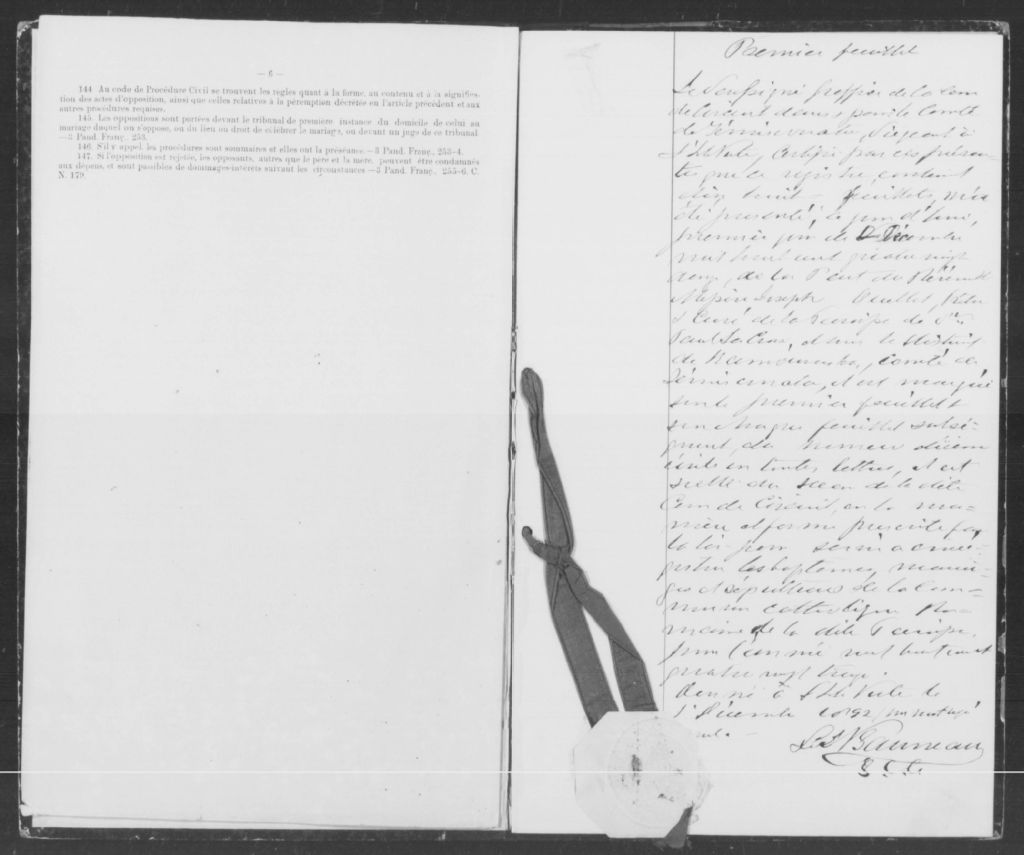 — 6 —
144 Au code de Procédure Civil se trouvent les regles quant à la forme, au contenu et à la significa-
tion des actes d'opposition, ainsi que celles relatives à la péremption décrétée en l'article précédent et aux
autres procédures requises.
145. Les oppositions sont portées devant le tribunal de première instance du domicile de celui au
mariage duquel on s'oppose, ou du lieu où droit de célébrer le mariage, ou devant un juge de ce tribunal
—3 Pand. Franç., 253.
146. S'il y appel, les procédures sont sommaires et elles ont la préséance.—3 Pand. Franç., 253-4.
147. Si l'opposition est rejetée, les opposants, autres que le père et la mère, peuvent être condamnés
aux dépens, et sont passibles de dommages-intérêts suivant les circonstances —3 Pand. Franç., 255-6. C.
N. 179.
Premier feuillet
Le Soussigné greffier de la cour
de Circuit dans pour le Comté
de Témiscouata, Siégeant à
certifie par ces présen-
tes que ce registre, contenant
dix huit feuillets, m'a
été présenté, ce jour d'hui,
premier jour de Décembre
mil huit cent quatre vingt
douze, de la Part du Révérend
Joseph Ouellet, Prêtre
& Curé de la Paroisse de St
Paul de la Croix, dans le District
de Kamouraska, Comté de
Témiscouata, et est marqué
sur le premier feuillet &
sur chaque feuillet subsé-
quent, du numéro
écrits en toutes lettres, et est
scellé du sceau de la dite
Cour de Circuit, en la ma-
nière et forme prescrite par
la loi pour servir à enre-
gistrer les baptêmes, maria-
ges et sépultures de la Com-
munion catholique Ro-
maine de la dite Paroisse,
pour l'année mil huit cent
quatre vingt treize.
Donné à
1er Décembre 1892